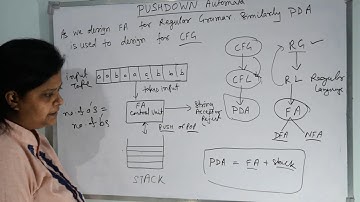 PUSHDOWN Automata
As we design FA for Regular Grammar Similarly PDA
is used to design for CFG
CFG
RG
input
tape
a a a a b b b
takes input
CFL
RL
Regular
Language
FA
Control Unit
String
Accept or
Reject
PDA
FA
no. of a's =
no. of bs
PUSH or POP
DFA
NFA
STACK
PDA = FA + Stack